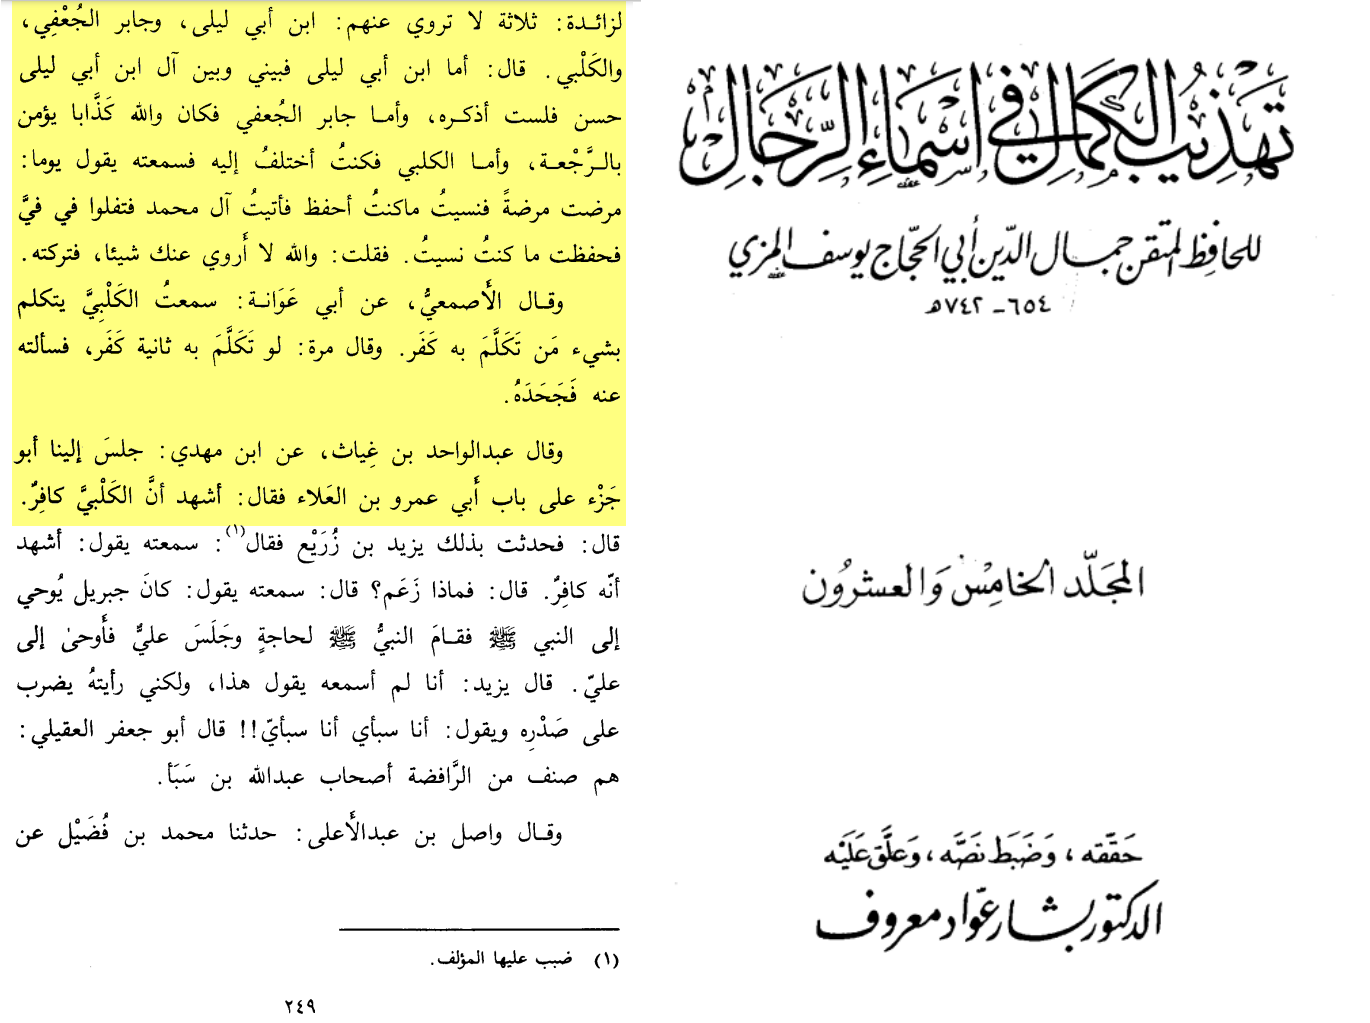 تهذيب الكمال في أسماء الرجال
للحافظ المتقن جمال الدين أبي الحجاج يوسف المزي
٦٥٤ - ٧٤٢ هـ
المجلد الخامس والعشرون
حققه، وضبط نصه، وعلق عليه
الدكتور بشار عواد معروف
لزائـدة: ثلاثة لا تروي عنهم: ابن أبي ليلى، وجابر الجُعْفِي،
والكَلْبي. قال: أما ابن أبي ليلى فبيني وبين آل ابن أبي ليلى
حسن فلست أذكـره، وأمـا جابر الجُعفي فكان والله كَذَّابا يؤمن
بالـرَّجْعـة، وأمـا الكلبي فكنتُ أختلفُ إليه فسمعته يقول يوما:
مرضت مرضةً فنسيتُ ماكنتُ أحفظ فأتيتُ آل محمد فتفلوا في فيَّ
فحفظت ما كنتُ نسيتُ. فقلت: والله لا أَروي عنك شيئا، فتركته.
وقـال الأَصمعيُّ، عن أبي عَوَانـة: سمعتُ الكَلْبِيَّ يتكلم
بشيء مَن تَكَلَّمَ به كَفَر. وقال مرة: لو تَكَلَّمَ به ثانية كَفَر، فسألته
عنه فَجَحَدَهُ.
وقال عبدالواحد بن غِياث، عن ابن مهدي: جلسَ إلينا أبو
جَزْء على باب أَبي عمرو بن العَلاء فقال: أشهد أنَّ الكَلْبيَّ كافِرٌ.
قال: فحدثت بذلك يزيد بن زُرَيْع فقال(١): سمعته يقول: أشهد
أنّه كافِرٌ. قال: فماذا زَعَم؟ قال: سمعته يقول: كانَ جبريل يُوحي
إلى النبي ﷺ فقـامَ النبيُّ ﷺ لحاجةٍ وجَلَسَ عليٌّ فأَوحىٰ إلى
عليّ. قال يزيد: أنا لم أسمعه يقول هذا، ولكني رأيتهُ يضرب
على صَدْرِه ويقول: أنا سبأي أنا سبأيّ!! قال أبو جعفر العقيلي:
هم صنف من الرَّافضة أصحاب عبدالله بن سَبَأ.
وقـال واصل بن عبدالأَعلى: حدثنا محمد بن فُضَيْل عن
(١) ضبب عليها المؤلف.
٢٤٩